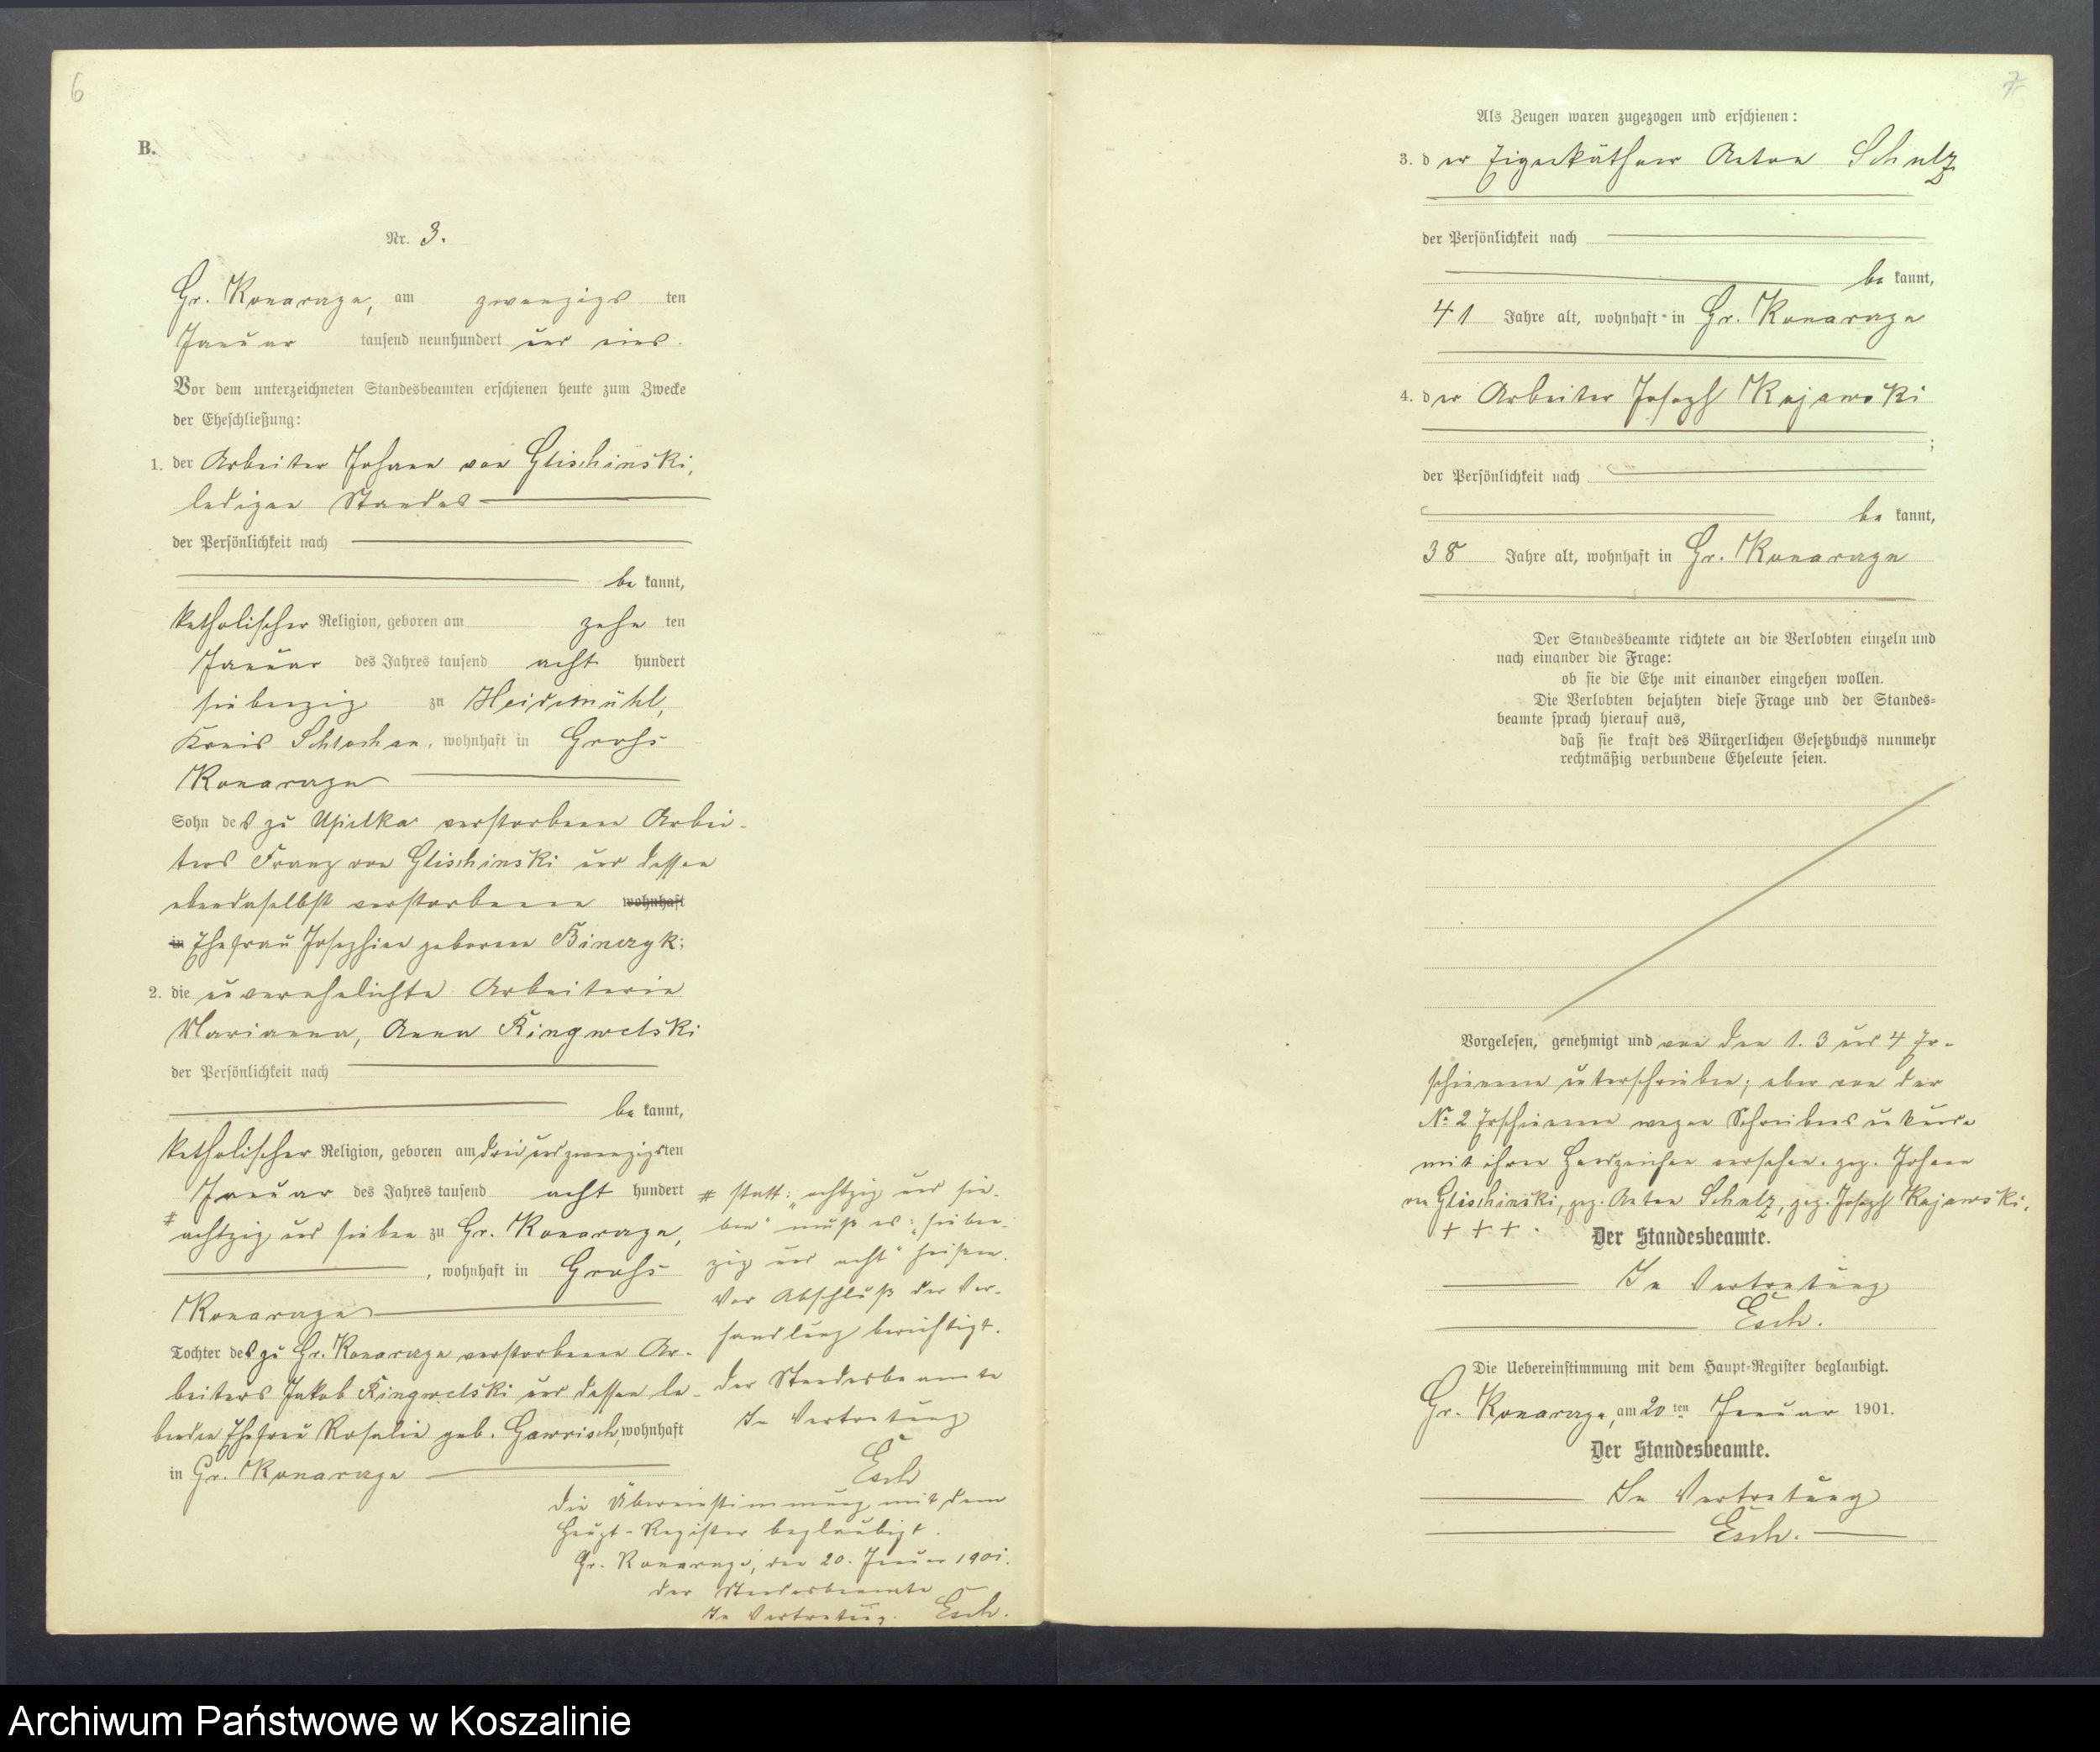 6
B.
Nr. 3.
Gr. Konarczyn, am zwanzigs ten
Januar tausend neunhundert und eins.
Vor dem unterzeichneten Standesbeamten erschienen heute zum Zwecke
der Eheschließung:
1. der Arbeiter Johann von Glischinski,
ledigen Standes
der Persönlichkeit nach
be kannt,
katholischer Religion, geboren am zehn ten
Januar des Jahres tausend acht hundert
siebenzig zu Heidemühl,
Kreis Schlochau, wohnhaft in Groß
Konarczyn
Sohn des zu Upilka verstorbenen Arbei-
ters Franz von Glischinski und dessen
ebendaselbst verstorbenen wohnhaft
in Ehefrau Josephine geborene Binczyk;
2. die unverehelichte Arbeiterin
Marianna, Anna Kingwelski
der Persönlichkeit nach
be kannt,
katholischer Religion, geboren am dreiundzwanzigsten
Januar des Jahres tausend acht hundert
# achtzig und sieben zu Gr. Konarczyn,
, wohnhaft in Groß
Konarczyn
Tochter des zu Gr. Konarczyn verstorbenen Ar-
beiters Jakob Kingwelski und dessen le-
benden Ehefrau Rosalie geb. Gawrisch, wohnhaft
in Gr. Konarczyn
# statt: „achtzig und sie-
ben“ muß es: „sieben-
zig und acht“ heißen.
Vor Abschluß der Ver-
handlung berichtigt.
Der Standesbeamte
In Vertretung
Esch
Die Übereinstimmung mit dem
Haupt-Register beglaubigt.
Gr. Konarczyn, den 20. Januar 1901.
Der Standesbeamte
In Vertretung. Esch.
7
Als Zeugen waren zugezogen und erschienen:
3. der Eigenkäthner Anton Schulz
der Persönlichkeit nach
be kannt,
41 Jahre alt, wohnhaft in Gr. Konarczyn
4. der Arbeiter Joseph Kujawski
;
der Persönlichkeit nach
be kannt,
38 Jahre alt, wohnhaft in Gr. Konarczyn
Der Standesbeamte richtete an die Verlobten einzeln und
nach einander die Frage:
ob sie die Ehe mit einander eingehen wollen.
Die Verlobten bejahten diese Frage und der Standes-
beamte sprach hierauf aus,
daß sie kraft des Bürgerlichen Gesetzbuchs nunmehr
rechtmäßig verbundene Eheleute seien.
Vorgelesen, genehmigt und von den 1. 3 und 4 Er-
schienenen unterschrieben; aber von der
No 2 Erschienenen wegen Schreibensunkunde
mit ihren Handzeichen versehen. gez. Johann
von Glischinski, gez. Anton Schulz, gez. Joseph Kujawski.
+ + + .
Der Standesbeamte.
In Vertretung
Esch.
Die Uebereinstimmung mit dem Haupt-Register beglaubigt.
Gr. Konarczyn, am 20 ten Januar 1901.
Der Standesbeamte.
In Vertretung
Esch.
Archiwum Państwowe w Koszalinie